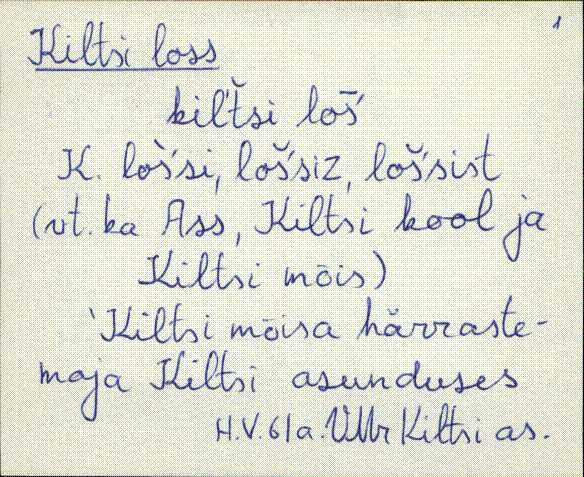 1
Kiltsi loss
kil̆tsi loš́
K. lòš́si, loš́siz, loš́sist
(vt. ka Ass, Kiltsi kool ja
Kiltsi mõis)
'Kiltsi mõisa härraste-
maja Kiltsi asunduses
H.V. 61a. VMr Kiltsi as.